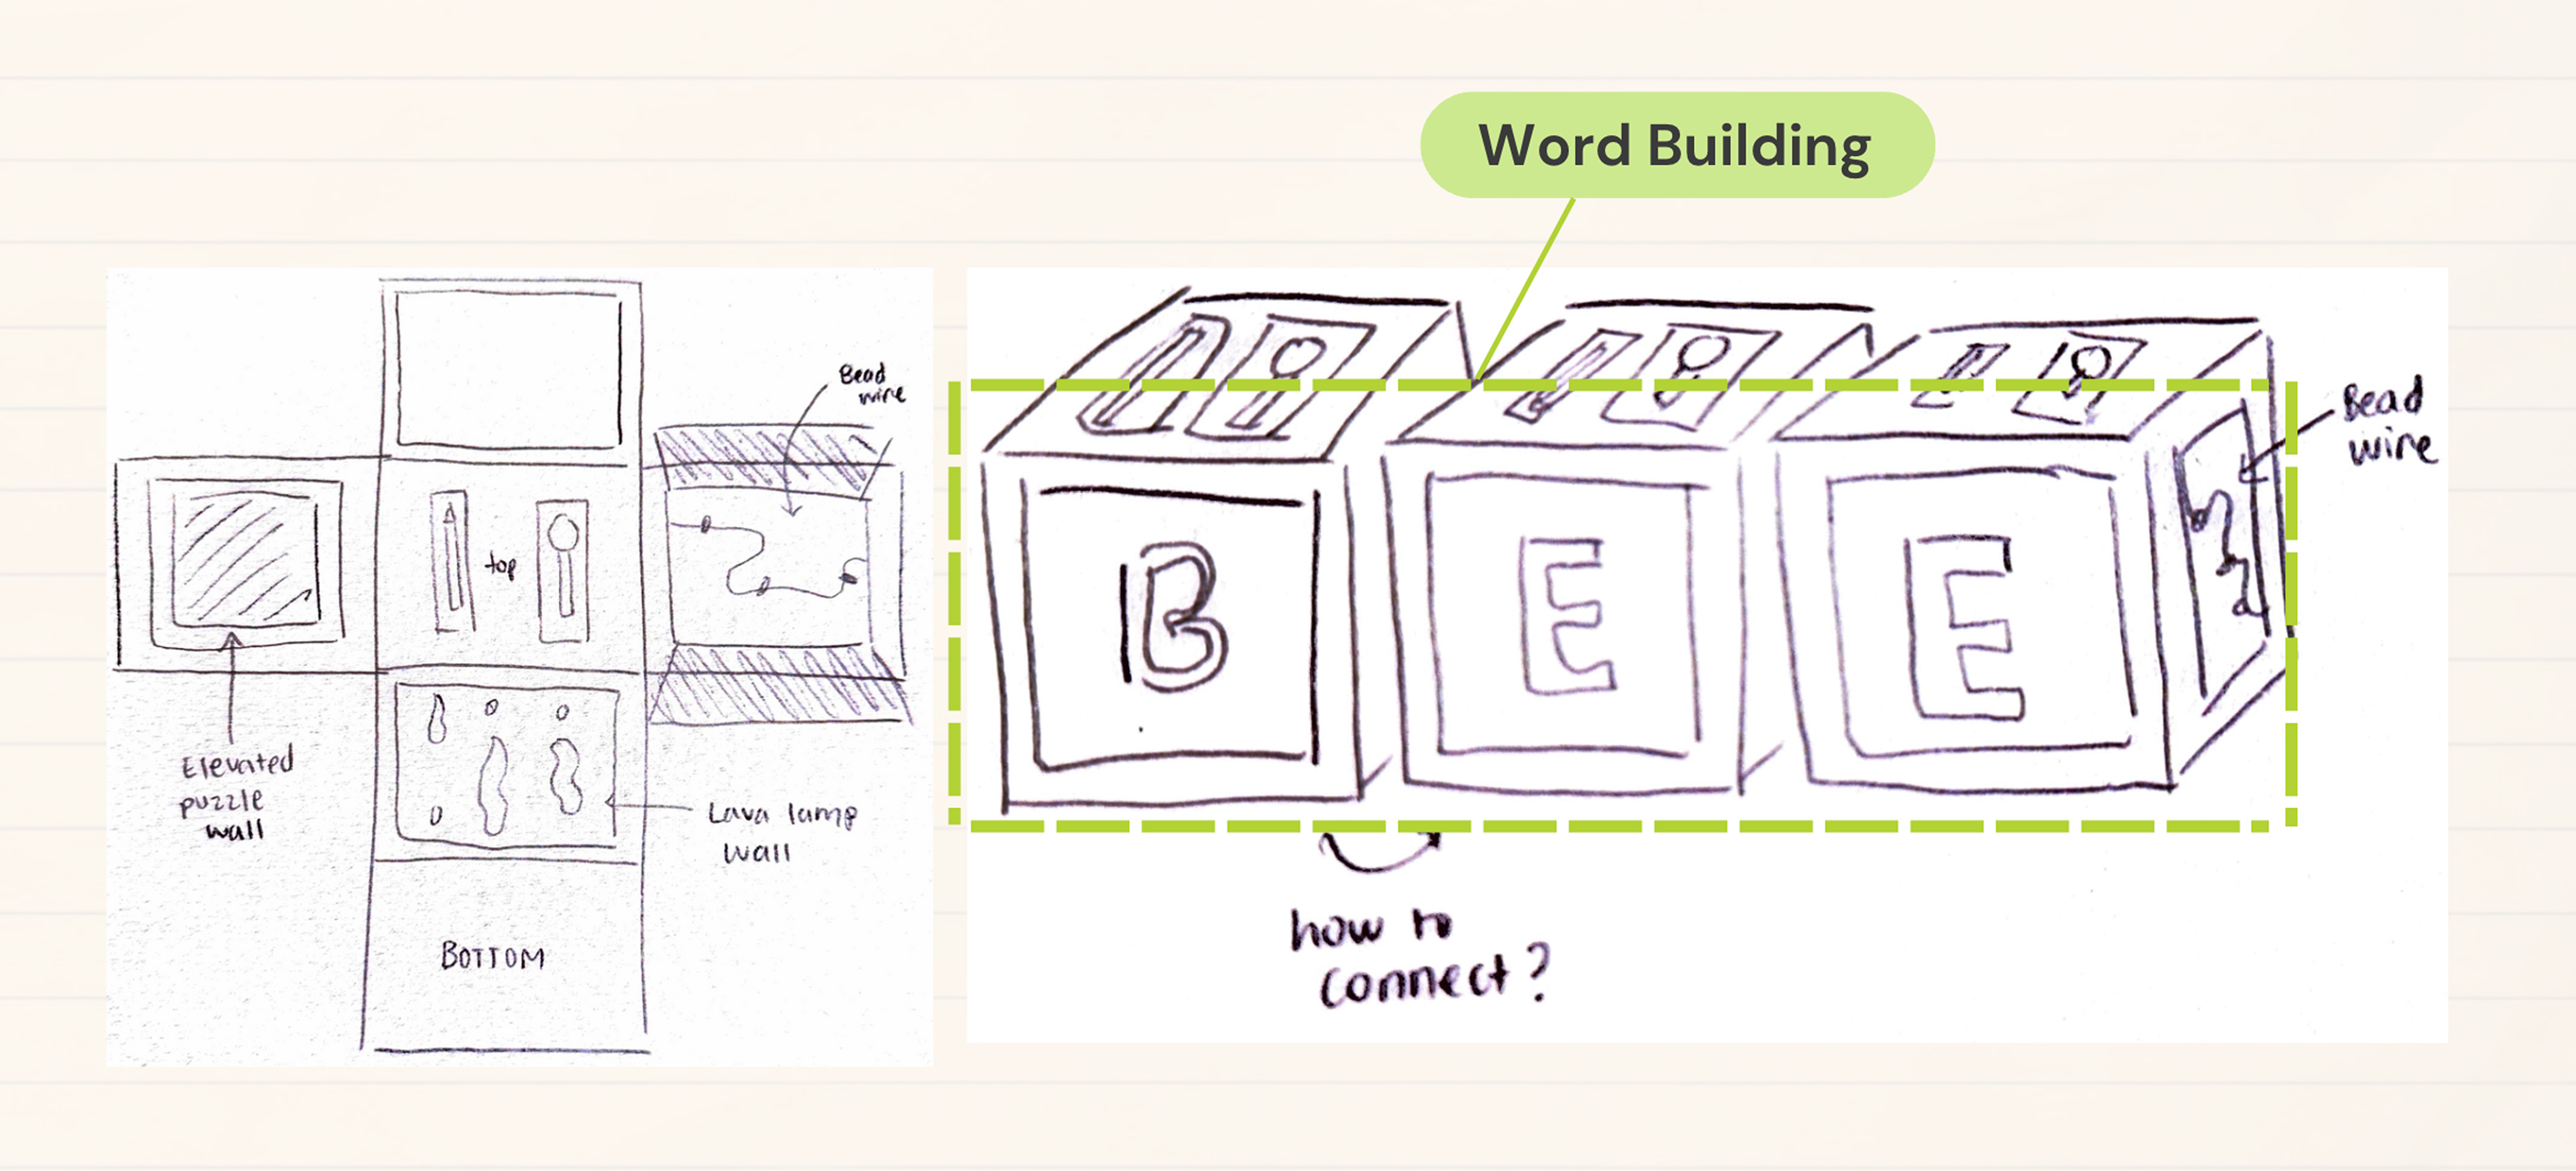 Word Building
Bead
wire
top
Elevated
puzzle
wall
Lava lamp
wall
BOTTOM
B E E
Bead
wire
how to
connect?